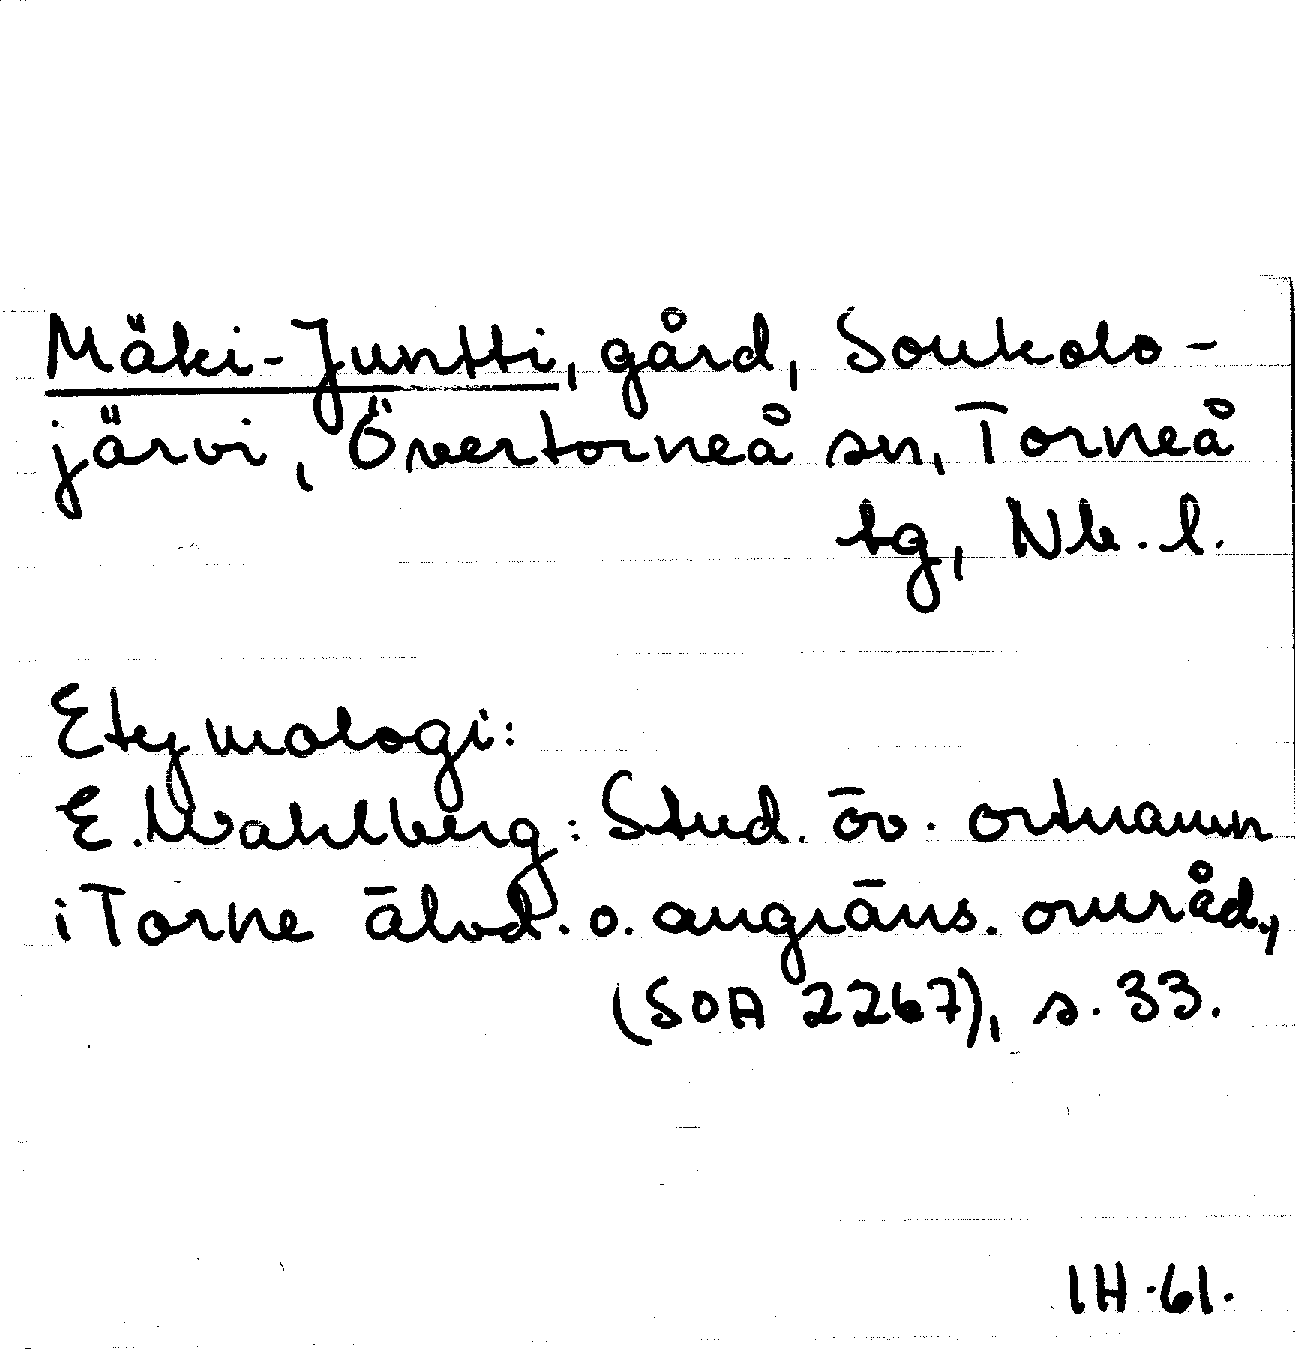 Mäki-Juntti, gård, Soukolo-
järvi, Övertorneå sn, Torneå
tg, Nb. l.
Etymologi:
E. Wahlberg: Stud. öv. ortnamn
i Torne älvd. o. angräns. områd.,
(SOA 2267), s. 33.
IH·61.